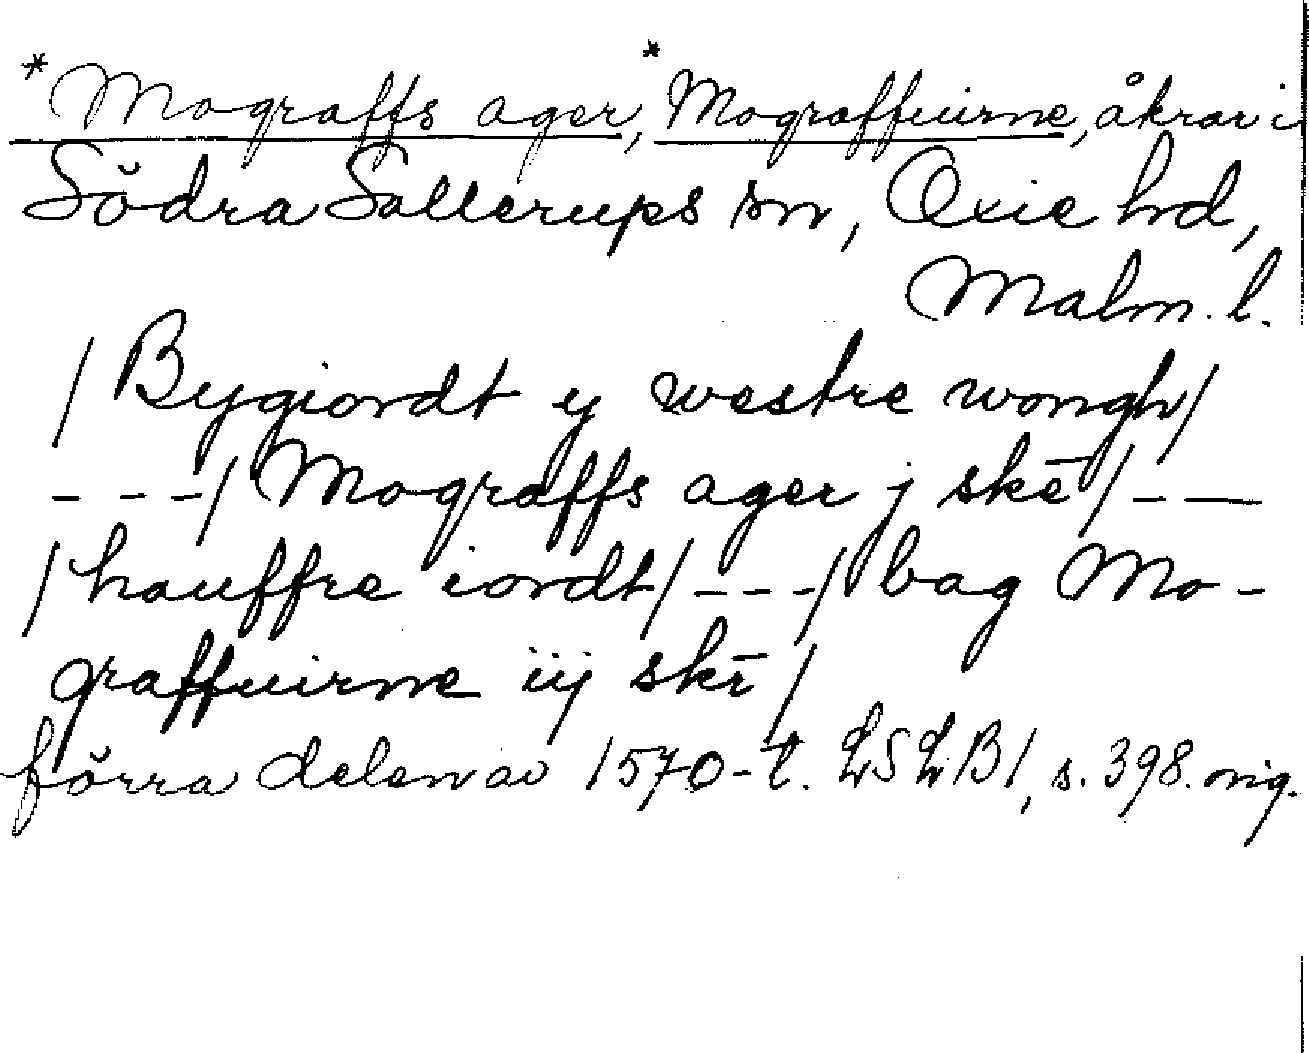 *Mograffs ager, *Mograffuirne, åkrar i
Södra Sallerups sn, Oxie hd,
Malm. l.
/ Bygiordt y westre wongh/
- - -/ Mograffs ager j skē/ - -
/ hauffre iordt/ - - -/ bag Mo-
graffuirne iij skē /
förra delen av 1570-t. LSLB1, s. 398. orig.